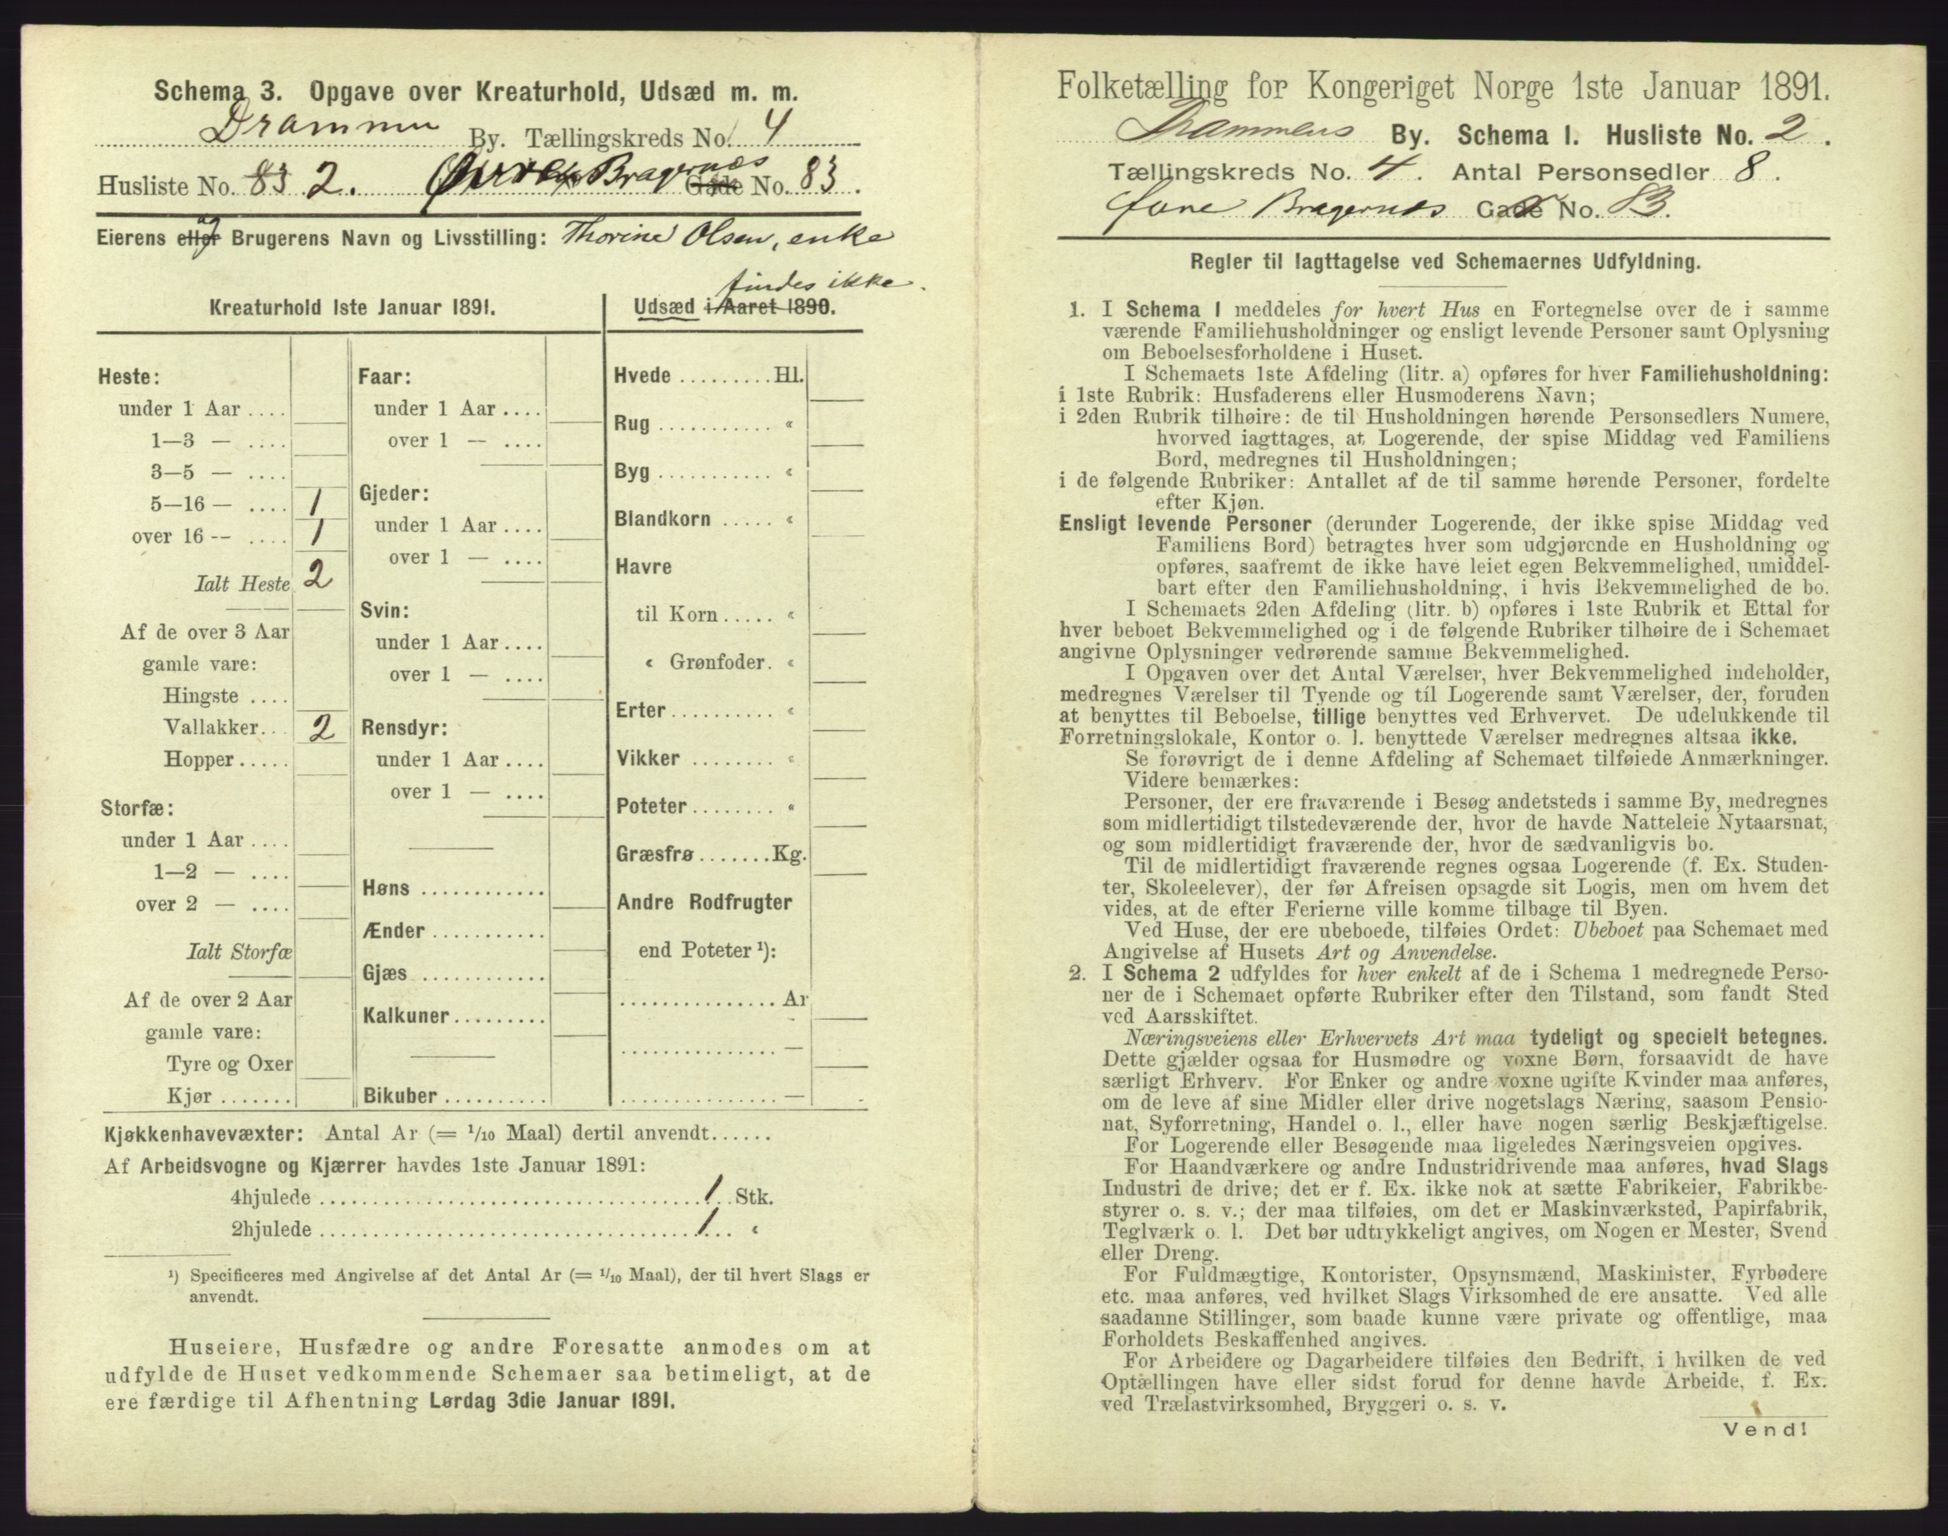 Schema 3. Opgave over Kreaturhold, Udsæd m. m.
Drammen By. Tællingskreds No. 4
Husliste No. 83 2. Øvre Bragernæs Gade No. 83.
Eierens eller og Brugerens Navn og Livsstilling: Thorine Olsen, enke
findes ikke.
Kreaturhold 1ste Januar 1891.
Udsæd i Aaret 1890.
Heste:
under 1 Aar ....
1—3 — ....
3—5 — ....
5—16 — .... 1
over 16 -- .... 1
Ialt Heste 2
Af de over 3 Aar
gamle vare:
Hingste ....
Vallakker... 2
Hopper .....
Storfæ:
under 1 Aar ....
1—2 — ....
over 2 — ....
Ialt Storfæ
Af de over 2 Aar
gamle vare:
Tyre og Oxer
Kjør .......
Faar:
under 1 Aar ....
over 1 — ....
Gjeder:
under 1 Aar ....
over 1 — ....
Svin:
under 1 Aar ....
over 1 — ....
Rensdyr:
under 1 Aar ....
over 1 — ....
Høns ............
Ænder ...........
Gjæs ............
Kalkuner .........
Bikuber ..........
Hvede ......... Hl.
Rug ........... «
Byg ........... «
Blandkorn ..... «
Havre
til Korn ..... «
« Grønfoder. «
Erter .......... «
Vikker ........ «
Poteter ........ «
Græsfrø ....... Kg.
Andre Rodfrugter
end Poteter ¹):
............... Ar
............... —
............... —
Kjøkkenhavevæxter: Antal Ar (= 1/10 Maal) dertil anvendt ......
Af Arbeidsvogne og Kjærrer havdes 1ste Januar 1891:
4hjulede .................................... 1 Stk.
2hjulede .................................... 1 «
¹) Specificeres med Angivelse af det Antal Ar (= 1/10 Maal), der til hvert Slags er
anvendt.
Huseiere, Husfædre og andre Foresatte anmodes om at
udfylde de Huset vedkommende Schemaer saa betimeligt, at de
ere færdige til Afhentning Lørdag 3die Januar 1891.
Folketælling for Kongeriget Norge 1ste Januar 1891.
Drammens By. Schema 1. Husliste No. 2.
Tællingskreds No. 4. Antal Personsedler 8.
Øvre Bragernæs Gade No. 83.
Regler til Iagttagelse ved Schemaernes Udfyldning.
1. I Schema 1 meddeles for hvert Hus en Fortegnelse over de i samme
værende Familiehusholdninger og ensligt levende Personer samt Oplysning
om Beboelsesforholdene i Huset.
I Schemaets 1ste Afdeling (litr. a) opføres for hver Familiehusholdning:
i 1ste Rubrik: Husfaderens eller Husmoderens Navn;
i 2den Rubrik tilhøire: de til Husholdningen hørende Personsedlers Numere,
hvorved iagttages, at Logerende, der spise Middag ved Familiens
Bord, medregnes til Husholdningen;
i de følgende Rubriker: Antallet af de til samme hørende Personer, fordelte
efter Kjøn.
Ensligt levende Personer (derunder Logerende, der ikke spise Middag ved
Familiens Bord) betragtes hver som udgjørende en Husholdning og
opføres, saafremt de ikke have leiet egen Bekvemmelighed, umiddel-
bart efter den Familiehusholdning, i hvis Bekvemmelighed de bo.
I Schemaets 2den Afdeling (litr. b) opføres i 1ste Rubrik et Ettal for
hver beboet Bekvemmelighed og i de følgende Rubriker tilhøire de i Schemaet
angivne Oplysninger vedrørende samme Bekvemmelighed.
I Opgaven over det Antal Værelser, hver Bekvemmelighed indeholder,
medregnes Værelser til Tyende og til Logerende samt Værelser, der, foruden
at benyttes til Beboelse, tillige benyttes ved Erhvervet. De udelukkende til
Forretningslokale, Kontor o. l. benyttede Værelser medregnes altsaa ikke.
Se forøvrigt de i denne Afdeling af Schemaet tilføiede Anmærkninger.
Videre bemærkes:
Personer, der ere fraværende i Besøg andetsteds i samme By, medregnes
som midlertidigt tilstedeværende der, hvor de havde Natteleie Nytaarsnat,
og som midlertidigt fraværende der, hvor de sædvanligvis bo.
Til de midlertidigt fraværende regnes ogsaa Logerende (f. Ex. Studen-
ter, Skoleelever), der før Afreisen opsagde sit Logis, men om hvem det
vides, at de efter Ferierne ville komme tilbage til Byen.
Ved Huse, der ere ubeboede, tilføies Ordet: Ubeboet paa Schemaet med
Angivelse af Husets Art og Anvendelse.
2. I Schema 2 udfyldes for hver enkelt af de i Schema 1 medregnede Perso-
ner de i Schemaet opførte Rubriker efter den Tilstand, som fandt Sted
ved Aarsskiftet.
Næringsveiens eller Erhvervets Art maa tydeligt og specielt betegnes.
Dette gjælder ogsaa for Husmødre og voxne Børn, forsaavidt de have
særligt Erhverv. For Enker og andre voxne ugifte Kvinder maa anføres,
om de leve af sine Midler eller drive nogetslags Næring, saasom Pensio-
nat, Syforretning, Handel o. l., eller have nogen særlig Beskjæftigelse.
For Logerende eller Besøgende maa ligeledes Næringsveien opgives.
For Haandværkere og andre Industridrivende maa anføres, hvad Slags
Industri de drive; det er f. Ex. ikke nok at sætte Fabrikeier, Fabrikbe-
styrer o. s. v.; der maa tilføies, om det er Maskinværksted, Papirfabrik,
Teglværk o. l. Det bør udtrykkeligt angives, om Nogen er Mester, Svend
eller Dreng.
For Fuldmægtige, Kontorister, Opsynsmænd, Maskinister, Fyrbødere
etc. maa anføres, ved hvilket Slags Virksomhed de ere ansatte. Ved alle
saadanne Stillinger, som baade kunne være private og offentlige, maa
Forholdets Beskaffenhed angives.
For Arbeidere og Dagarbeidere tilføies den Bedrift, i hvilken de ved
Optællingen have eller sidst forud for denne havde Arbeide, f. Ex.
ved Trælastvirksomhed, Bryggeri o. s. v.
Vend!